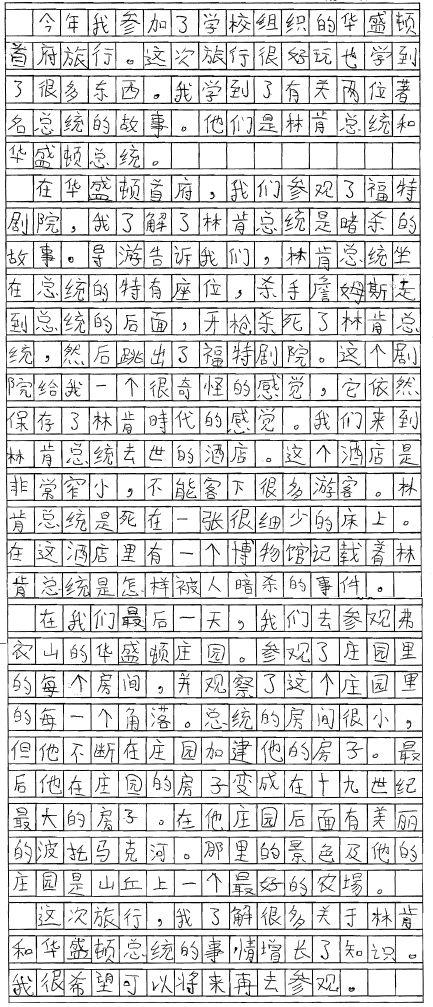 今年我参加了学校组织的华盛顿
首府旅行。这次旅行很好玩也学到
了很多东西。我学到了有关两位著
名总统的故事。他们是林肯总统和
华盛顿总统。
在华盛顿首府，我们参观了福特
剧院，我了解了林肯总统是暗杀的
故事。导游告诉我们，林肯总统坐
在总统的特有座位，杀手詹姆斯走
到总统的后面，开枪杀死了林肯总
统，然后跳出了福特剧院。这个剧
院给我一个很奇怪的感觉，它依然
保存了林肯时代的感觉。我们来到
林肯总统去世的酒店。这个酒店是
非常窄小，不能客下很多游客。林
肯总统是死在一张很细少的床上。
在这酒店里有一个博物馆记载着林
肯总统是怎样被人暗杀的事件。
在我们最后一天，我们去参观弗
农山的华盛顿庄园。参观了庄园里
的每个房间，并观察了这个庄园里
的每一个角落。总统的房间很小，
但他不断在庄园加建他的房子。最
后他在庄园的房子变成在十九世纪
最大的房子。在他庄园后面有美丽
的波托马克河。那里的景色及他的
庄园是山丘上一个最好的农場。
这次旅行，我了解很多关于林肯
和华盛顿总统的事情增长了知识。
我很希望可以将来再去参观。